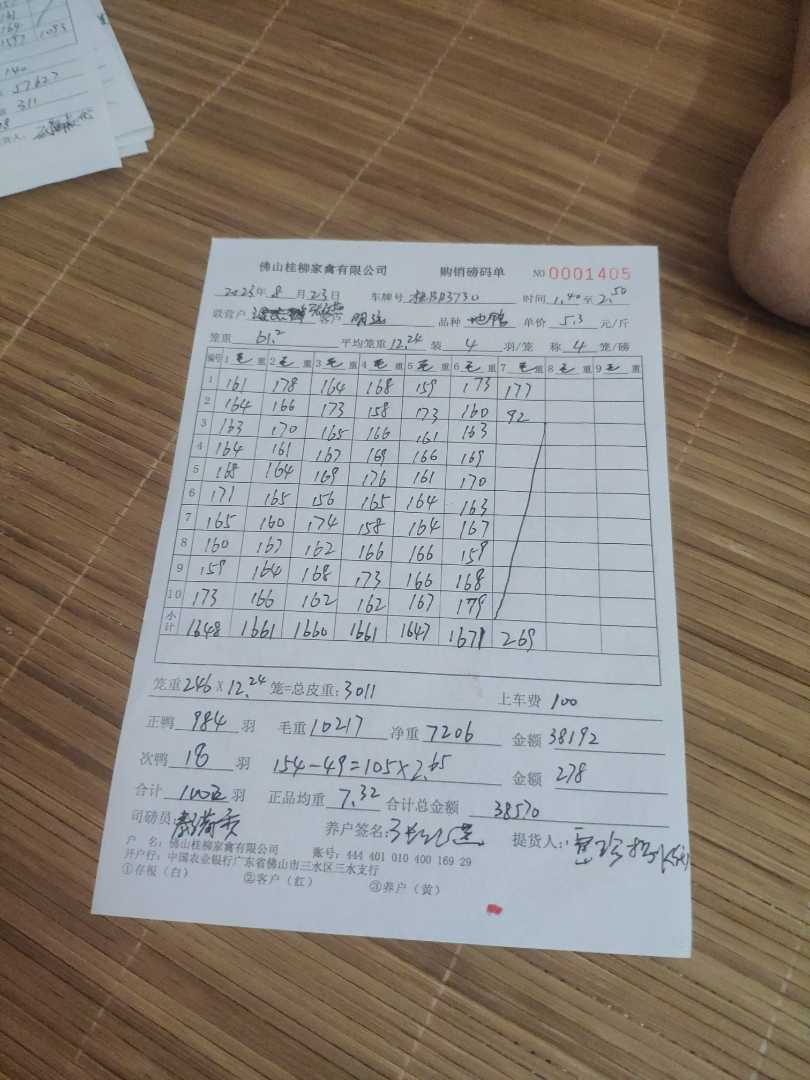 151
161
169
1597 1093
140
57627
311
佛山桂柳家禽有限公司 购销磅码单 NO 0001405
2023年 8 月 23日 车牌号 3730 时间 1.40 至 2.50
联营户 客户 明远 品种 单价 5.3 元/斤
笼重 61.2 平均笼重 12.24 装 4 羽/笼 称 4 笼/磅
编号 1 毛 重 2 毛 重 3 毛 重 4 毛 重 5 毛 重 6 毛 重 7 毛 重 8 毛 重 9 毛 重
1 161 178 164 168 159 173 177
2 164 166 173 158 173 160 92
3 163 170 165 166 161 163
4 164 161 167 169 166 169
5 168 164 169 176 161 170
6 171 165 156 165 164 163
7 165 160 174 158 164 167
8 160 167 162 166 166 159
9 159 164 168 173 166 168
10 173 166 162 162 167 179
小计 1648 1661 1660 1661 1647 1671 269
笼重 246 × 12.24 笼=总皮重: 3011 上车费 100
正鸭 984 羽 毛重 10217 净重 7206 金额 38192
次鸭 18 羽 154-49=105×2.65 金额 278
合计 羽 正品均重 7.32 合计总金额 38570
司磅员: 养户签名: 提货人:
户 名: 佛山桂柳家禽有限公司 账号: 444 401 010 400 169 29
开户行: 中国农业银行广东省佛山市三水区三水支行
①存根（白） ②客户（红） ③养户（黄）